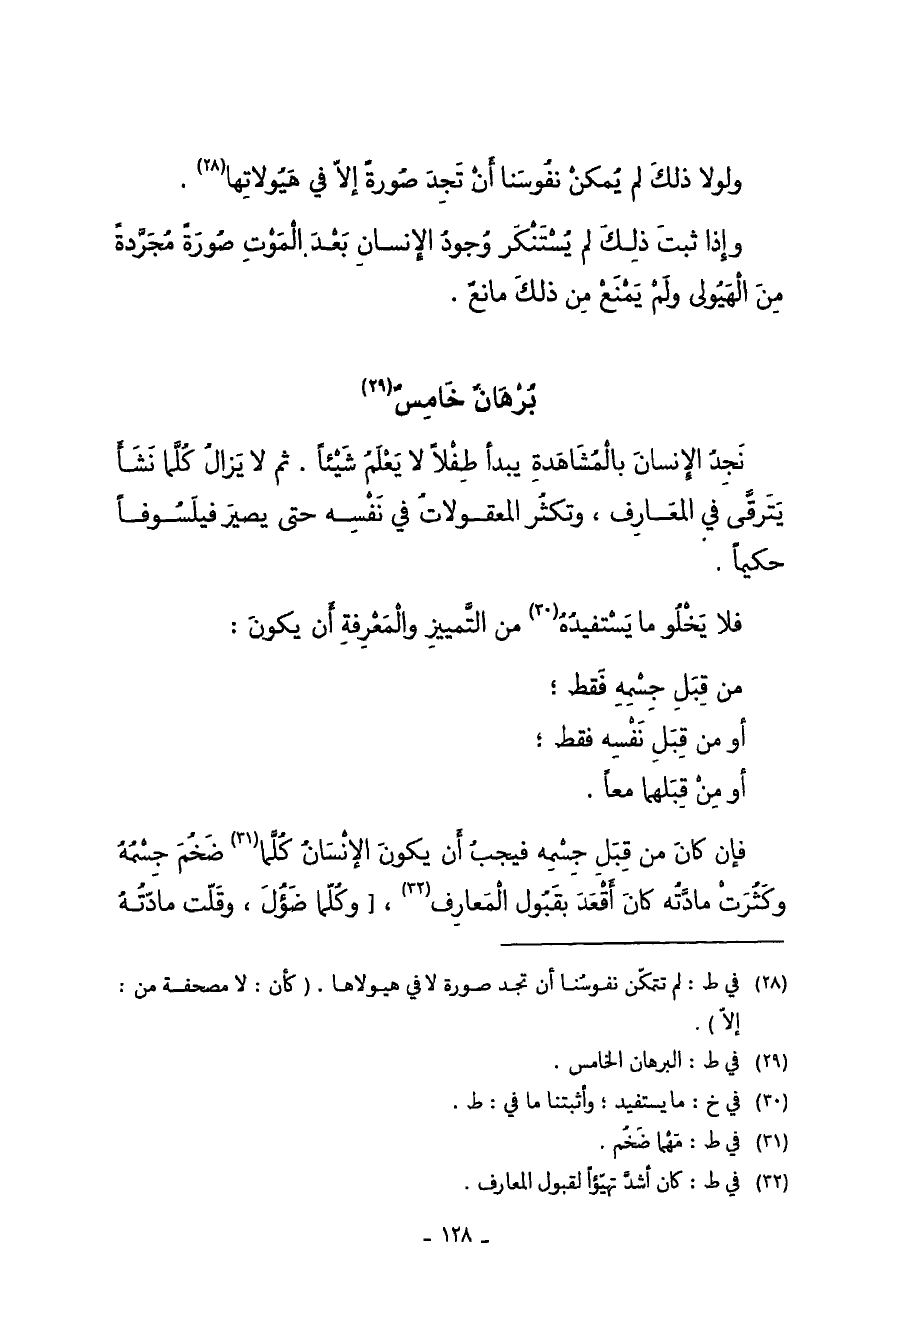 ولولا ذلكَ لم يُمكنْ نفُوسَنا أَنْ تَجِدَ صُورةً إلاّ في هَيُولاتِها(٢٨) .
وإذا ثبتَ ذلِكَ لم يُسْتَنْكَر وُجودُ الإنسانِ بَعْدَ الْمَوْتِ صُورَةً مُجَرَّدةً
مِنَ الْهَيُولى ولَمْ يَمْنَعْ مِن ذلكَ مانعٌ .
بُرْهَانٌ خَامِسٌ(٢٩)
نَجِدُ الإنسانَ بالْمُشَاهَدةِ يبدأ طِفْلاً لا يَعْلَمُ شَيْئاً . ثم لا يَزالُ كُلَّما نَشَأَ
يَتَرقَّى في المعَارِف ، وتكثُر المعقولاتُ في نَفْسِه حتى يصيرَ فيلَسُوفاً
حكيماً .
فلا يَخْلُو ما يَسْتفيدُهُ(٣٠) من التَّمييزِ والْمَعْرِفةِ أَن يكونَ :
من قِبَلِ جِسْمِهِ فَقط ؛
أو من قِبَلِ نَفْسِه فقط ؛
أو مِنْ قِبَلهما معاً .
فإن كانَ من قِبَلِ جِسْمِه فيجبُ أَن يكونَ الإنْسَانُ كُلَّما(٣١) ضَخُمَ جِسْمُهُ
وكَثُرَتْ مادَّتُه كانَ أَقْعَدَ بقَبُول الْمَعارِف(٣٢) ، [ وكُلّما ضَؤُلَ ، وقَلّت مادّتُهُ
(٢٨) في ط : لم تتمكّن نفوسُنا أن تجد صورة لا في هيولاها . ( كأن : لا مصحفة من :
إلاّ ) .
(٢٩) في ط : البرهان الخامس .
(٣٠) في خ : ما يستفيد ؛ وأثبتنا ما في : ط .
(٣١) في ط : مَهْما ضَخُم .
(٣٢) في ط : كان أشدَّ تهيّؤاً لقبول المعارف .
- ١٢٨ -